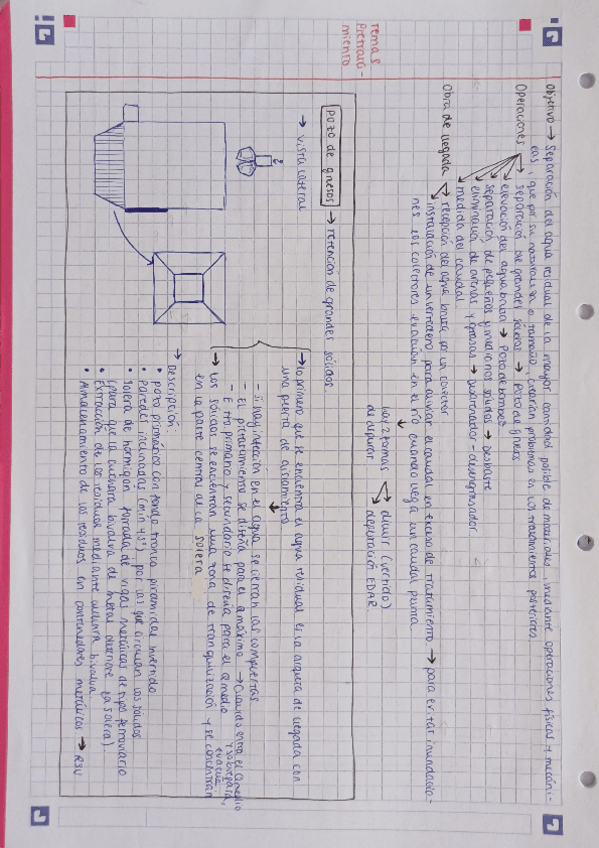 Tema 2
Pretrata-
miento
Objetivo → Separación del agua residual de la mayor cantidad posible de materiales, mediante operaciones físicas y mecáni-
cas, que por su naturaleza o tamaño, crearían problemas en los tratamientos posteriores.
Operaciones → separación de grandes sólidos → Pozo de gruesos
elevación del agua bruta → Pozo de bombeo
separación de pequeños y medianos sólidos → desbaste
eliminación de arenas y grasas → desarenador-desengrasador
medida del caudal
Obra de llegada → recepción del agua bruta por un colector
instalación de un vertedero para aliviar el caudal en exceso de tratamiento → para evitar inundacio-
nes los colectores evacúan en el río cuando llega un caudal punta
hay 2 formas → diluir (vertido)
de depurar → depuración EDAR
Pozo de gruesos → retención de grandes sólidos
→ vista lateral
→ lo primero que se encuentra el agua residual es la arqueta de llegada con
una puerta de aislamiento
- Si hay infección en el agua se cierran las compuertas
- El pretratamiento se diseña para el Q máximo → Cuando entra el Q medio
- El tto primario y secundario se diseña para el Q medio
y sobrepasa,
evacúa
→ Los sólidos se encuentran una zona de tranquilización y se concentran
en la parte central de la solera
→ Descripción:
• pozo prismático con fondo tronco piramidal invertido
• Paredes inclinadas (mín 45°) por las que circulan los sólidos
• Solera de hormigón forrada de vigas metálicas de tipo ferroviario
(para que la cuchara bivalva de hierro deteriore la solera)
• Extracción de los residuos mediante cuchara bivalva
• Almacenamiento de los residuos en contenedores metálicos → RSU